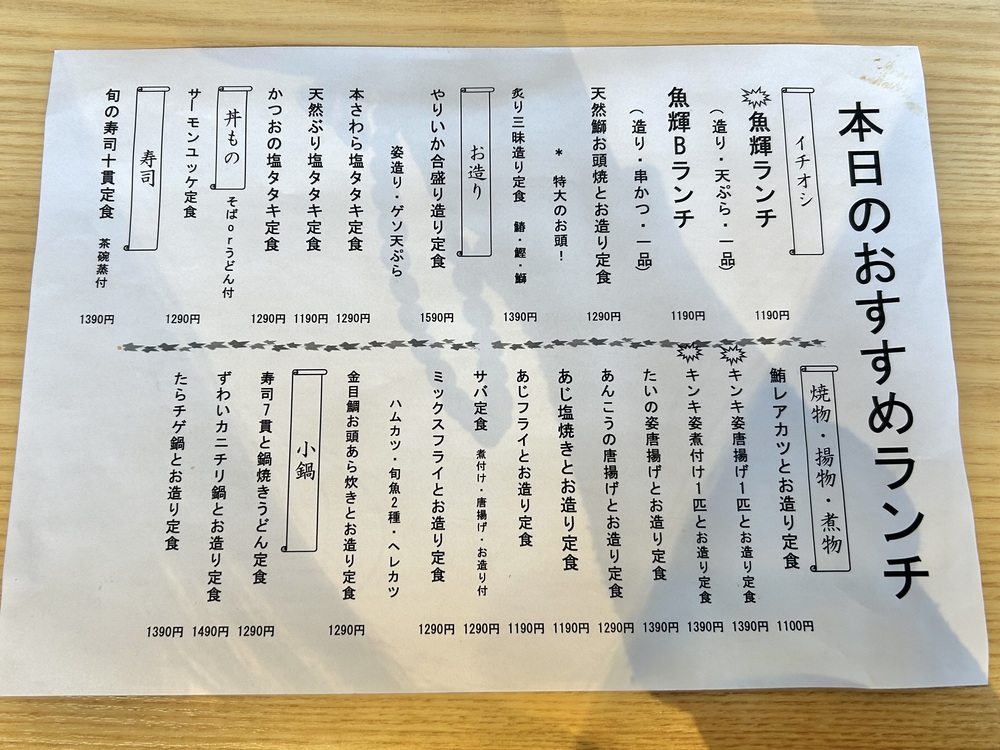 本日のおすすめランチ
イチオシ
魚輝ランチ
(造り・天ぷら・一品)
1190円
魚輝Bランチ
(造り・串かつ・一品)
1190円
天然鰤お頭焼とお造り定食
* 特大のお頭!
1290円
炙り三昧造り定食 鰆・鰹・鰤
1390円
お造り
やりいか合盛り造り定食
姿造り・ゲソ天ぷら
1590円
本さわら塩タタキ定食
1290円
天然ぶり塩タタキ定食
1190円
かつおの塩タタキ定食
1290円
丼もの
そばorうどん付
サーモンユッケ定食
1290円
寿司
旬の寿司十貫定食 茶碗蒸付
1390円
焼物・揚物・煮物
鮪レアカツとお造り定食
1100円
キンキ姿唐揚げ1匹とお造り定食
1390円
キンキ姿煮付け1匹とお造り定食
1390円
たいの姿唐揚げとお造り定食
1390円
あんこうの唐揚げとお造り定食
1290円
あじ塩焼きとお造り定食
1190円
あじフライとお造り定食
1190円
サバ定食 煮付け・唐揚げ・お造り付
1290円
ミックスフライとお造り定食
ハムカツ・旬魚2種・ヘレカツ
1290円
金目鯛お頭あら炊きとお造り定食
1290円
小鍋
寿司7貫と鍋焼きうどん定食
1290円
ずわいカニチリ鍋とお造り定食
1490円
たらチゲ鍋とお造り定食
1390円